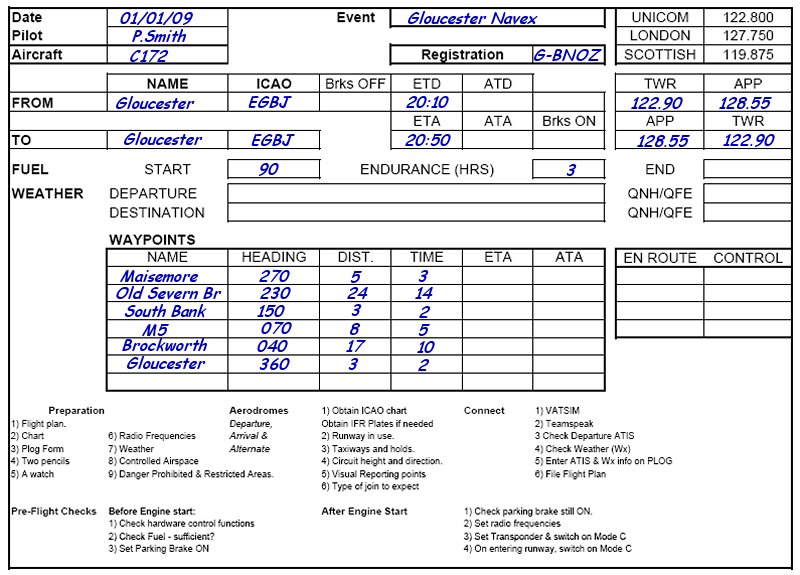 Date 01/01/09 Event Gloucester Navex UNICOM 122.800
Pilot P.Smith LONDON 127.750
Aircraft C172 Registration G-BNOZ SCOTTISH 119.875
NAME ICAO Brks OFF ETD ATD TWR APP
FROM Gloucester EGBJ 20:10 122.90 128.55
ETA ATA Brks ON APP TWR
TO Gloucester EGBJ 20:50 128.55 122.90
FUEL START 90 ENDURANCE (HRS) 3 END
WEATHER DEPARTURE QNH/QFE
DESTINATION QNH/QFE
WAYPOINTS
NAME HEADING DIST. TIME ETA ATA EN ROUTE CONTROL
Maisemore 270 5 3
Old Severn Br 230 24 14
South Bank 150 3 2
M5 070 8 5
Brockworth 040 17 10
Gloucester 360 3 2
Preparation Aerodromes 1) Obtain ICAO chart Connect 1) VATSIM
1) Flight plan. Departure, Obtain IFR Plates if needed 2) Teamspeak
2) Chart 6) Radio Frequencies Arrival & 2) Runway in use. 3 Check Departure ATIS
3) Plog Form 7) Weather Alternate 3) Taxiways and holds. 4) Check Weather (Wx)
4) Two pencils 8) Controlled Airspace 4) Circuit height and direction. 5) Enter ATIS & Wx info on PLOG
5) A watch 9) Danger Prohibited & Restricted Areas. 5) Visual Reporting points 6) File Flight Plan
6) Type of join to expect
Pre-Flight Checks Before Engine start: After Engine Start 1) Check parking brake still ON.
1) Check hardware control functions 2) Set radio frequencies
2) Check Fuel - sufficient? 3) Set Transponder & switch on Mode C
3) Set Parking Brake ON 4) On entering runway, switch on Mode C